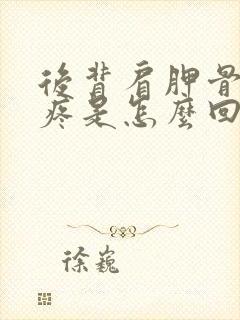 後背肩胛骨
疼是怎麼回
徐巍